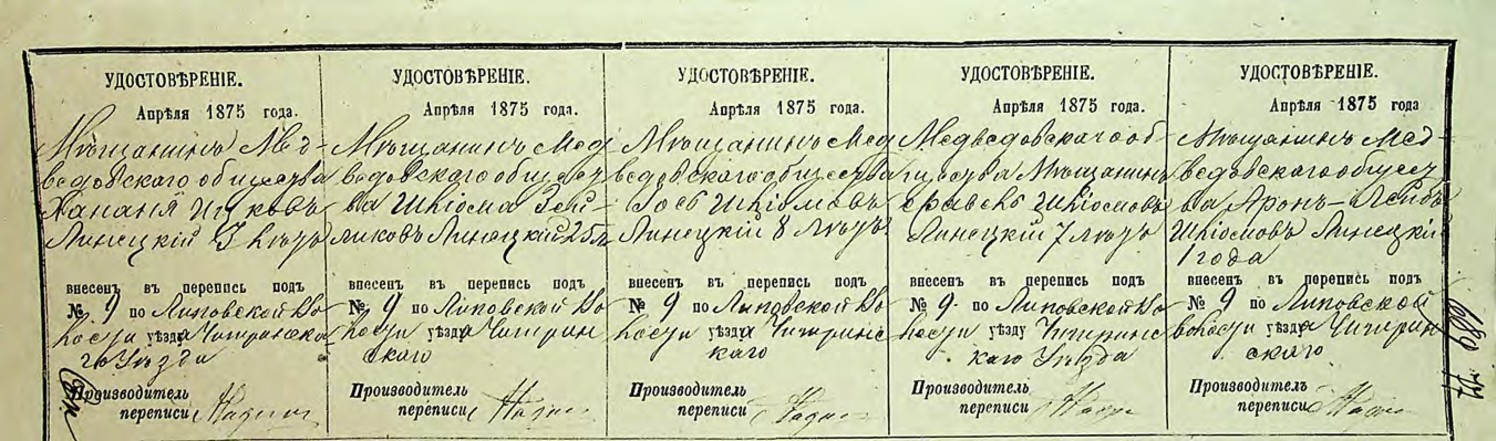 УДОСТОВѢРЕНІЕ.
Апрѣля 1875 года.
Мѣщанинъ Мед-
ведовскаго общества
Хананя Ицковъ
Линецкій
внесенъ въ перепись подъ
№ 9 по Липовской Во
лости уѣзда Чигринска
го Уѣзда
Производитель
переписи
УДОСТОВѢРЕНІЕ.
Апрѣля 1875 года.
Мѣщанинъ Мед
ведовскаго общест
ва Шкіома Зей-
ликовъ Линецкій 25 л
внесенъ въ перепись подъ
№ 9 по Липовской Во
лости уѣзда Чигрин
скаго
Производитель
переписи
УДОСТОВѢРЕНІЕ.
Апрѣля 1875 года.
Мѣщанинъ Мед
ведовскаго общества
Іось Шкіомовъ
Линецкій 8 лѣтъ
внесенъ въ перепись подъ
№ 9 по Липовской Во
лости уѣзда Чигринс
каго
Производитель
переписи
УДОСТОВѢРЕНІЕ.
Апрѣля 1875 года.
Медведовскаго об
щества Мѣщанинъ
Шкіомовъ
Линецкій 7 лѣтъ
внесенъ въ перепись подъ
№ 9 по Липовской Во
лости уѣзду Чигринс
каго Уѣзда
Производитель
переписи
УДОСТОВѢРЕНІЕ.
Апрѣля 1875 года
Мѣщанинъ Мед
ведовскаго общест
ва Аронъ-Лейбъ
Шкіомовъ Линецкій
1 года
внесенъ въ перепись подъ
№ 9 по Липовской
волости уѣзда Чигрин
скаго
Производитель
переписи